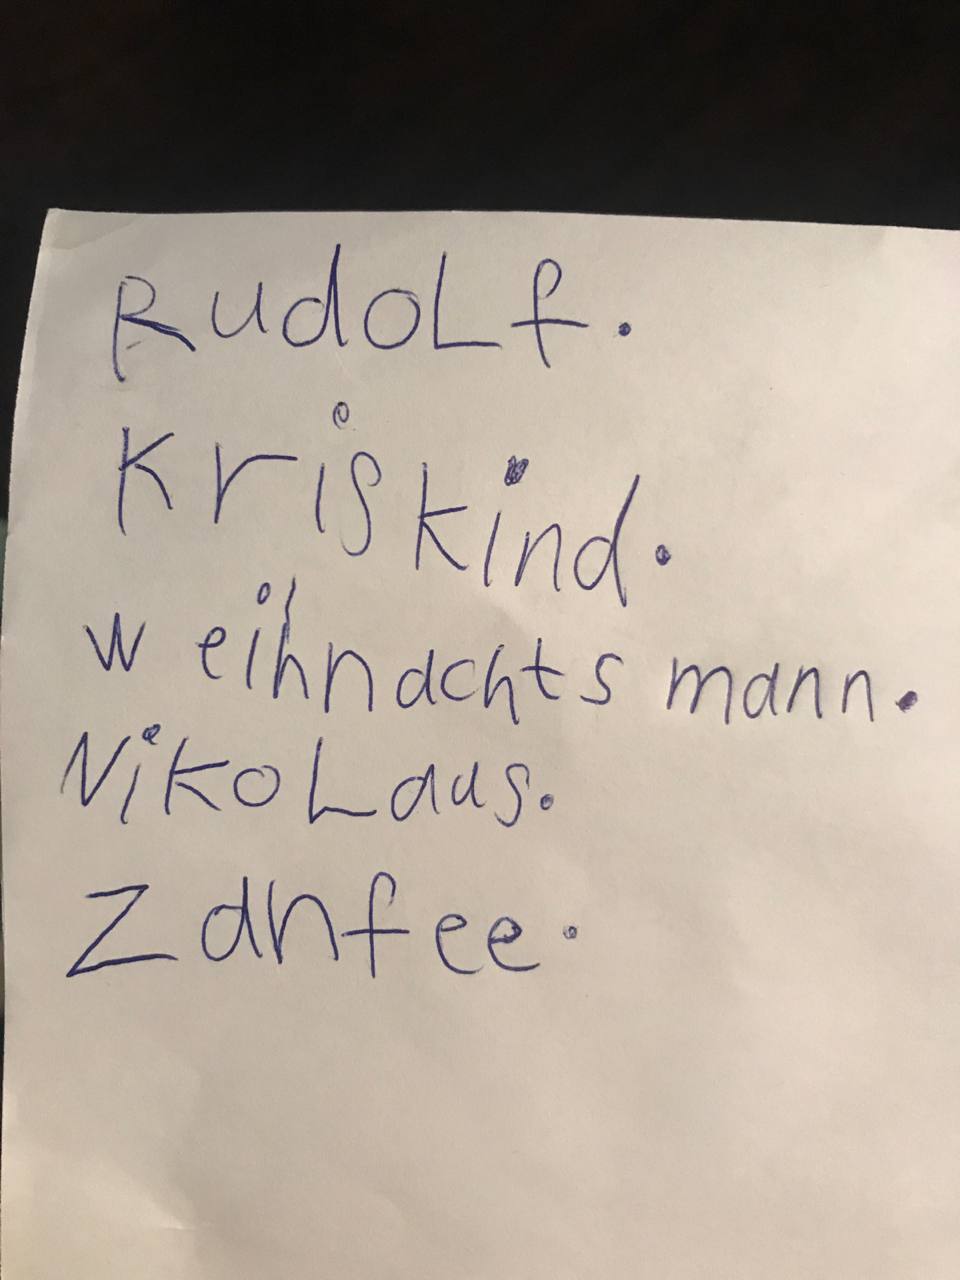 RudoLf.
Kriskind.
weihnachts mann.
NikoLaus.
Zanfee.